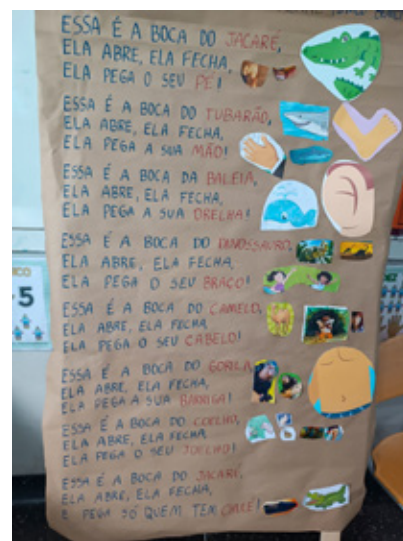 ESSA É A BOCA DO JACARÉ,
ELA ABRE, ELA FECHA,
ELA PEGA O SEU PÉ!
ESSA É A BOCA DO TUBARÃO,
ELA ABRE, ELA FECHA,
ELA PEGA A SUA MÃO!
ESSA É A BOCA DA BALEIA,
ELA ABRE, ELA FECHA,
ELA PEGA A SUA ORELHA!
ESSA É A BOCA DO DINOSSAURO,
ELA ABRE, ELA FECHA,
ELA PEGA O SEU BRAÇO!
ESSA É A BOCA DO CAMELO,
ELA ABRE, ELA FECHA,
ELA PEGA O SEU CABELO!
ESSA É A BOCA DO GORILA,
ELA ABRE, ELA FECHA,
ELA PEGA A SUA BARRIGA!
ESSA É A BOCA DO COELHO,
ELA ABRE, ELA FECHA,
ELA PEGA O SEU JOELHO!
ESSA É A BOCA DO JACARÉ,
ELA ABRE, ELA FECHA,
E PEGA SÓ QUEM TEM CHULÉ!
5